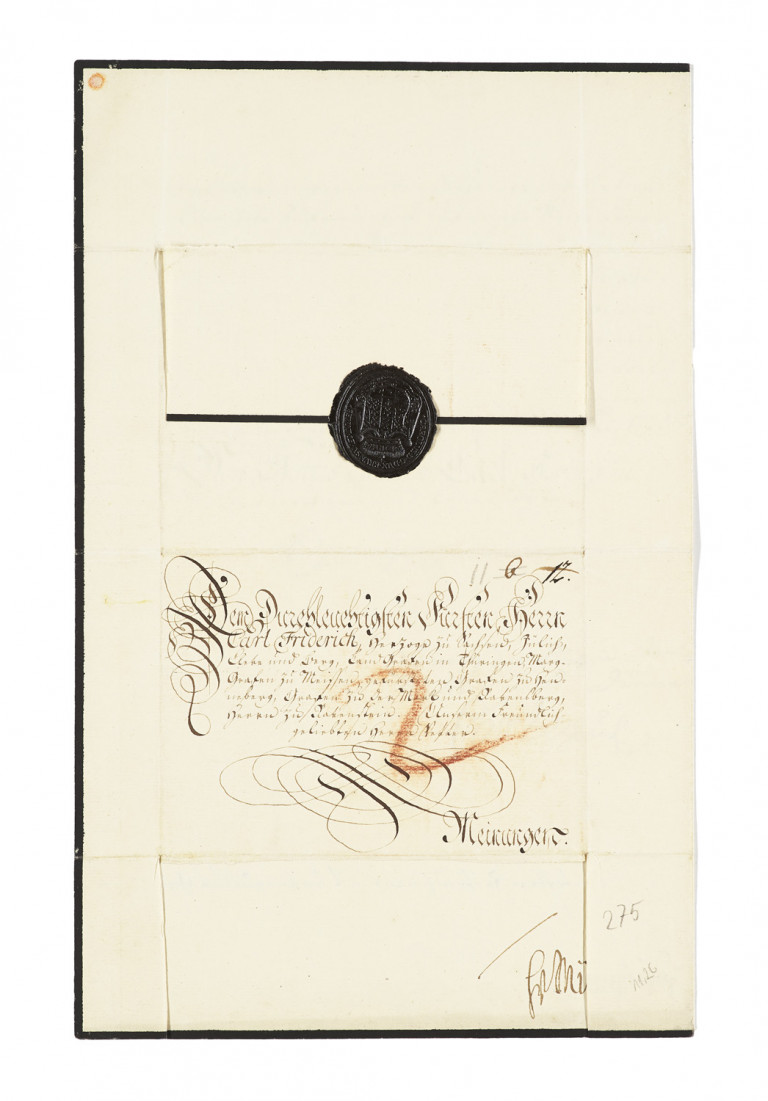 11 6 12.
Dem Durchleuchtigsten Fürsten Herrn
Carl Friderich, Herzoge zu Sachsen, Jülich,
Cleve und Berg, Land Grafen in Thüringen, Marg-
Grafen zu Meißen, gefürsteten Grafen zu Hen-
neberg, Grafen zu der Marck und Ravensberg,
Herrn zu Ravenstein, Unserm Freundlich
geliebten Herrn Vetter.
Meinungen.
275